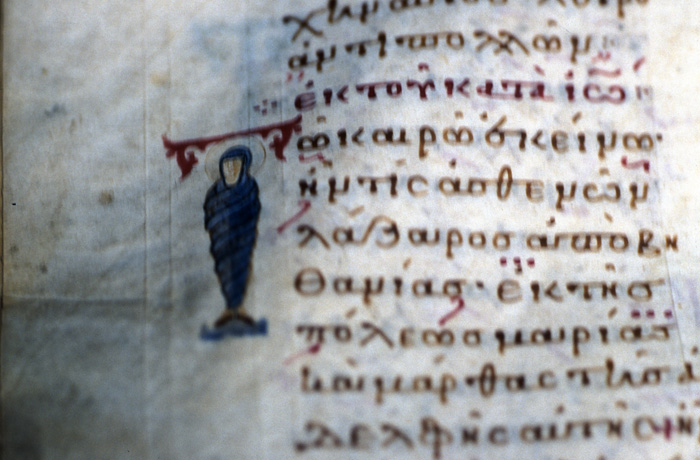 ἀντὶ πολλῶν·
ἐκ τοῦ κατὰ ἰω
Τῶ καιρῶ ἐκείνω·
ἦν τίς ἀσθενῶν
λάζαρος ἀπὸ βη
θανίας· ἐκ τῆς
πόλεως μαρίας
καὶ μάρθας τῆς ἀ
δελφῆς αὐτῆς· ἦν